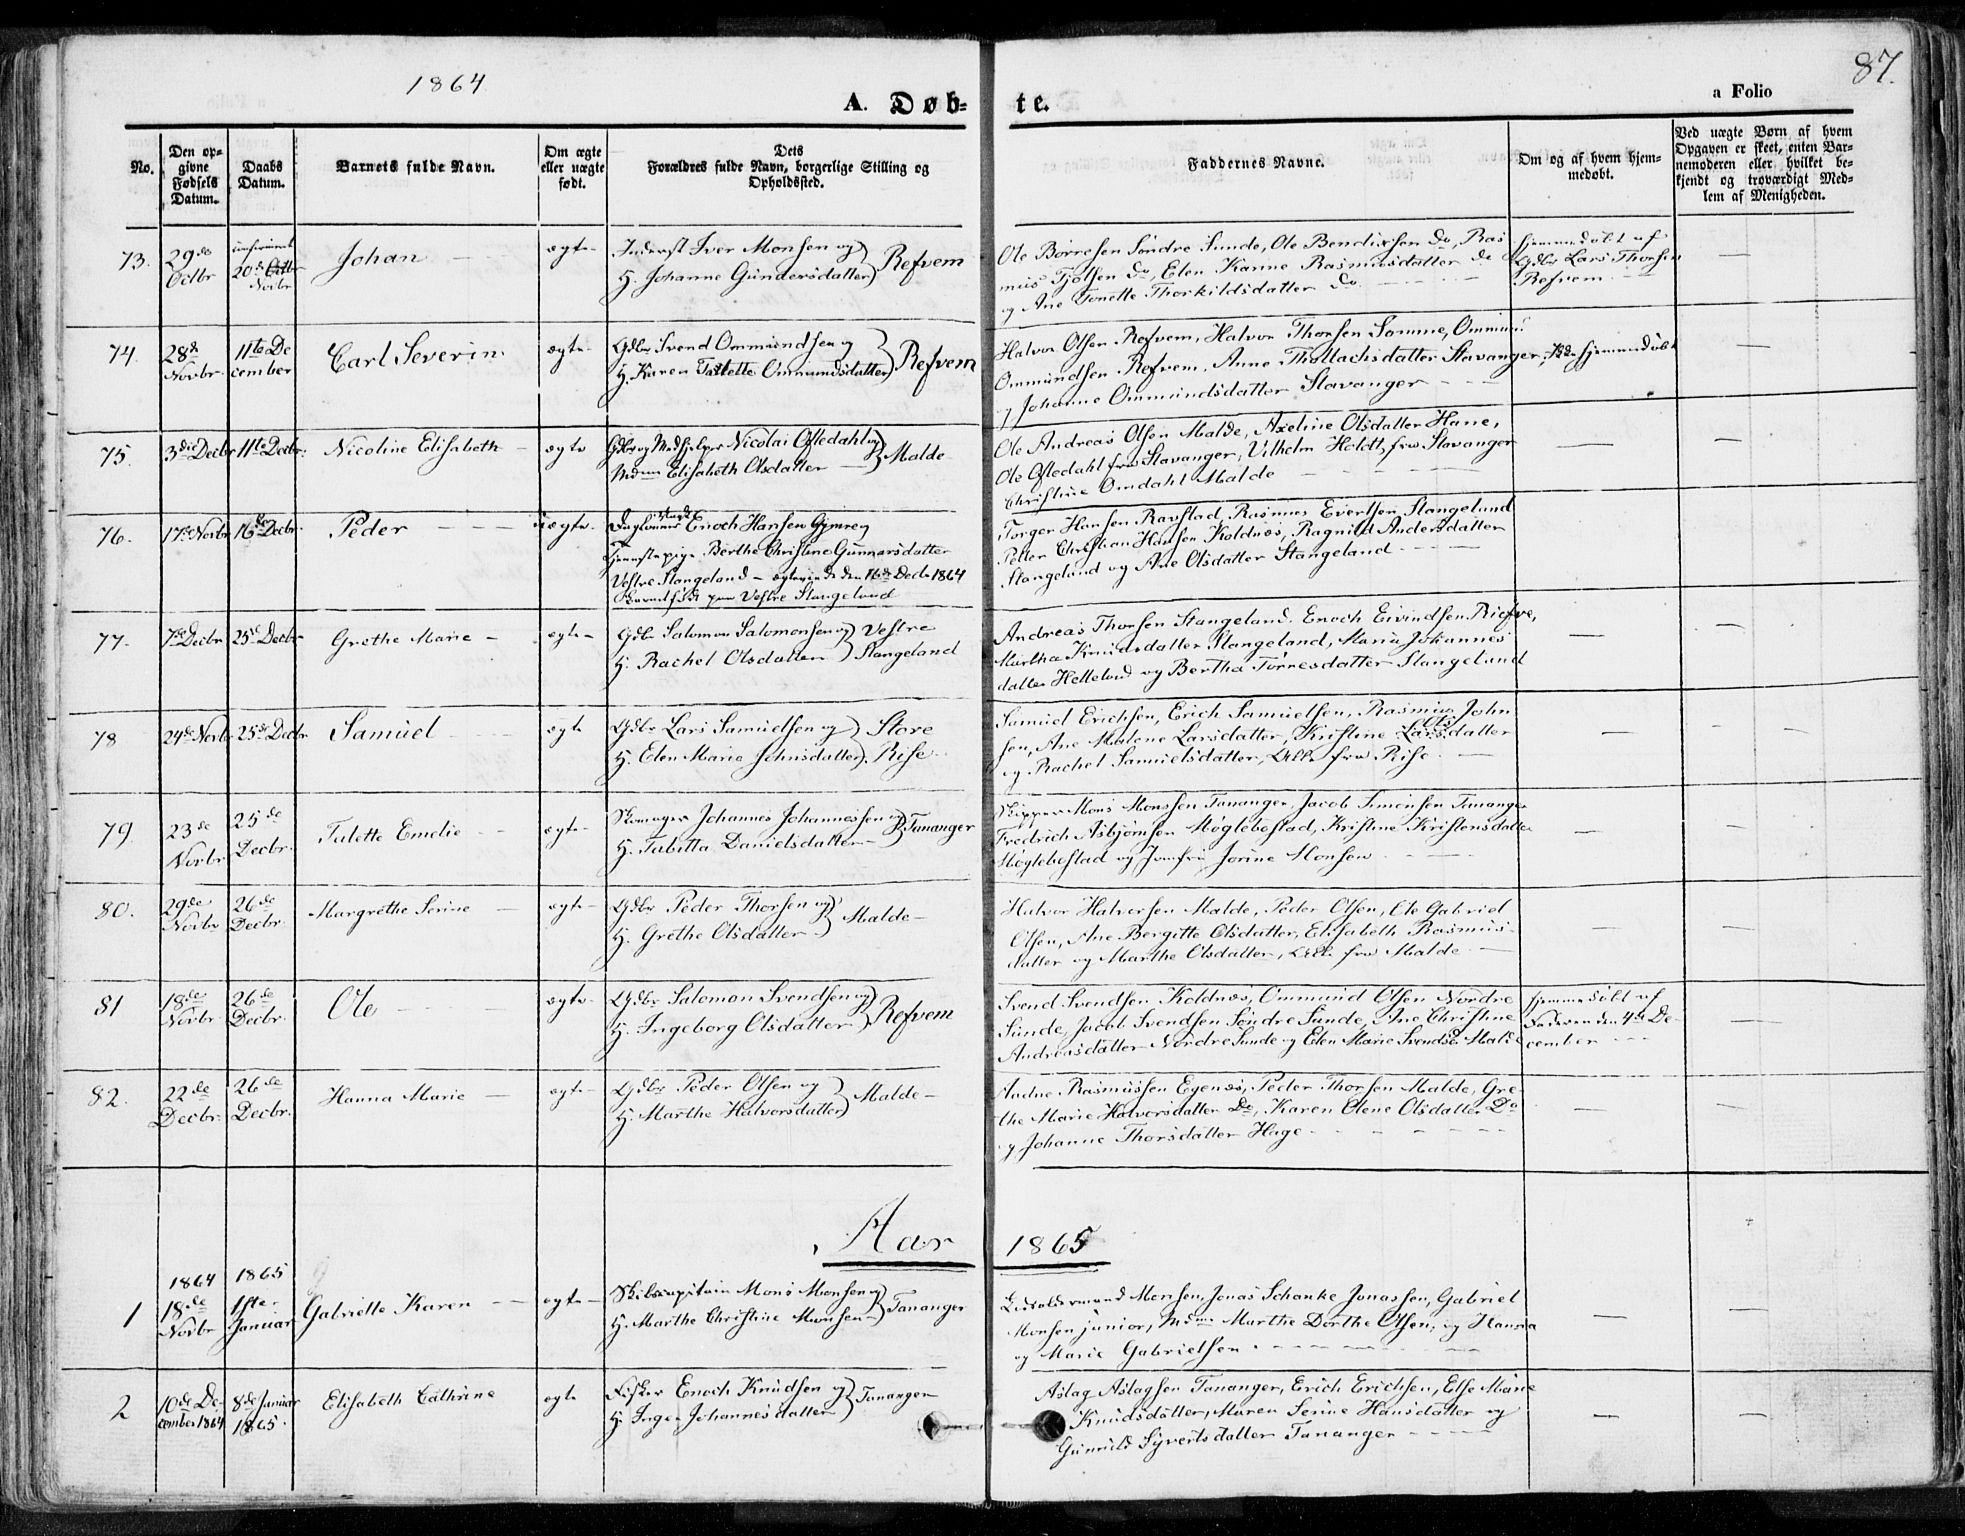 1864
87.
A. Døb-
te.
a Folio
No.
Den op-
givne
Fødsels
Datum.
Daabs
Datum.
Barnets fulde Navn.
Om ægte
eller uægte
født.
Dets
Forældres fulde Navn, borgerlige Stilling og
Opholdssted.
Faddernes Navne.
Om og af hvem hjem-
medøbt.
Ved uægte Børn af hvem
Opgaven er skeet, enten Bar-
nemoderen eller hvilket be-
kjendt og troværdigt Med-
lem af Menigheden.
73.
29de
Octbr
20de Octbr
Novbr
Johan
ægte
Inderst Iver Monsen og
H. Johanne Gundersdatter
Refvem
Ole Børresen Søndre Sunde, Ole Bendixsen Do, Ras
mus Tjølsen Do, Elen Karine Rasmusdatter do
og Ane Tonette Thorkildsdatter Do.
hjemmedøbt af
Gdbr Lars Thorsen
Refvem
74.
28de
Novbr
11te De
cember
Carl Severin
ægte
Gdbr Svend Ommundsen og
H. Karen Ommundsdatter
Refvem
Halvor Olsen Refvem, Halvor Thorsen Somme, Ommund
Ommundsen Refvem, Anne Thollachsdatter Stavanger,
og Johanne Ommundsdatter Stavanger
hjemmedøbt
75.
3die Decbr
11te Decbr.
Nicoline Elisabeth
ægte
Gdbr og Medhjelper Nicolai Oftedahl og
Mdme Elisabeth Olsdatter
Malde
Ole Andreas Olsen Malde, Axeline Olsdatter Hane,
Ole Oftedahl fra Stavanger, Vilhelm Holdt fra Stavanger
Christine Omdahl Malde
76.
17de Novbr
16de Decbr
Peder
uægte
Enoch Hansen Gimre og
Tjenestepige Berthe Christine Gunnarsdatter
Vestre Stangeland - den 16de Decbr 1864
Barnet født paa Vestre Stangeland
Torger Hansen Ravstad, Rasmus Evertsen Stangeland
Peder Christian Hansen Koldnes, Ragnild Andersdatter
Stangeland og Ane Olsdatter Stangeland
77.
7de Decbr
25de Decbr
Grethe Marie
ægte
Gdbr Salomon Salomonsen og
H. Rachel Olsdatter
Vestre
Stangeland
Andreas Thorsen Stangeland. Enoch Eivindsen Riefve,
Martha Knudsdatter Stangeland, Maria Johannes
datter Helleland og Bertha Tørresdatter Stangeland
78
24de Novbr
25de Decbr
Samuel
ægte
Gdbr Lars Samuelsen og
H. Elen Marie Johnsdatter
Store
Risе
Samuel Erichsen, Erich Samuelsen, Rasmus John
sen, Ane Malene Larsdatter, Kristine Larsdatter
Ols
og Rachel Samuelsdatter, Alle fra Rise
79.
23de
Novbr
25de
Decbr.
Talette Emelie
ægte
Skomager Johannes Johannessen og
H. Tabitta Danielsdatter
Tananger
Skipper Mons Monssen Tananger, Jacob Simonsen Tananger
Fredrich Asbjørnsen Møglebostad, Kristine Kristensdatter
Møglebostad og Jomfru Jorine Monsen
80.
29de
Novbr
26de
Decbr
Margrethe Serine
ægte
Gdbr Peder Thorsen og
H. Grethe Olsdatter
Malde
Halvor Halvorsen Malde, Peder Olsen, Ole Gabriel
Olsen, Ane Bergitte Olsdatter, Elisabeth Rasmus-
datter og Marthe Olsdatter, Alle fra Malde
81
18de
Novbr
26de
Decbr
Ole
ægte
Gdbr Salomon Svendsen og
H. Ingeborg Olsdatter
Refvem
Svend Svendsen Koldnes, Ommund Olsen Nordre
Sunde, Jacob Svendsen Søndre Sunde, Ane Christine
Andreasdatter Nordre Sunde og Elen Marie Svendsd Malde
hjemmedøbt af
Faderen den 4de De
cember
82.
22de
Decbr.
26de
Decbr.
Hanna Marie
ægte
Gdbr Peder Olsen og
H. Marthe Halvorsdatter
Malde
Audne Rasmussen Egenes, Peder Thorsen Malde, Gre
the Marie Halvorsdatter Do, Karen Olene Olsdatter Do
og Johanne Thorsdatter Hage
Aar
1865
1
1864
18de
Novbr
1865
1ste
Januar
Gabrielle Karen
ægte
Skibscapitain Mons Monsen og
H. Marthe Christine Monsen
Tananger
Monsen, Jonas Schanke Jonassen, Gabriel
Monsen junior, Mdme Marthe Dorthe Olsen, og Hanna
og Marie Gabrielsen
2
10de De-
cember 1864
8de Januar
1865.
Elisabeth Cathrine
ægte
Fisker Enoch Knudsen og
H. Inger Johannesdatter
Tananger
Aslag Aslagsen Tananger, Erich Erichsen, Else Marie
Knudsdatter, Maren Serine Hansdatter og
Gunnild Syvertsdatter Tananger